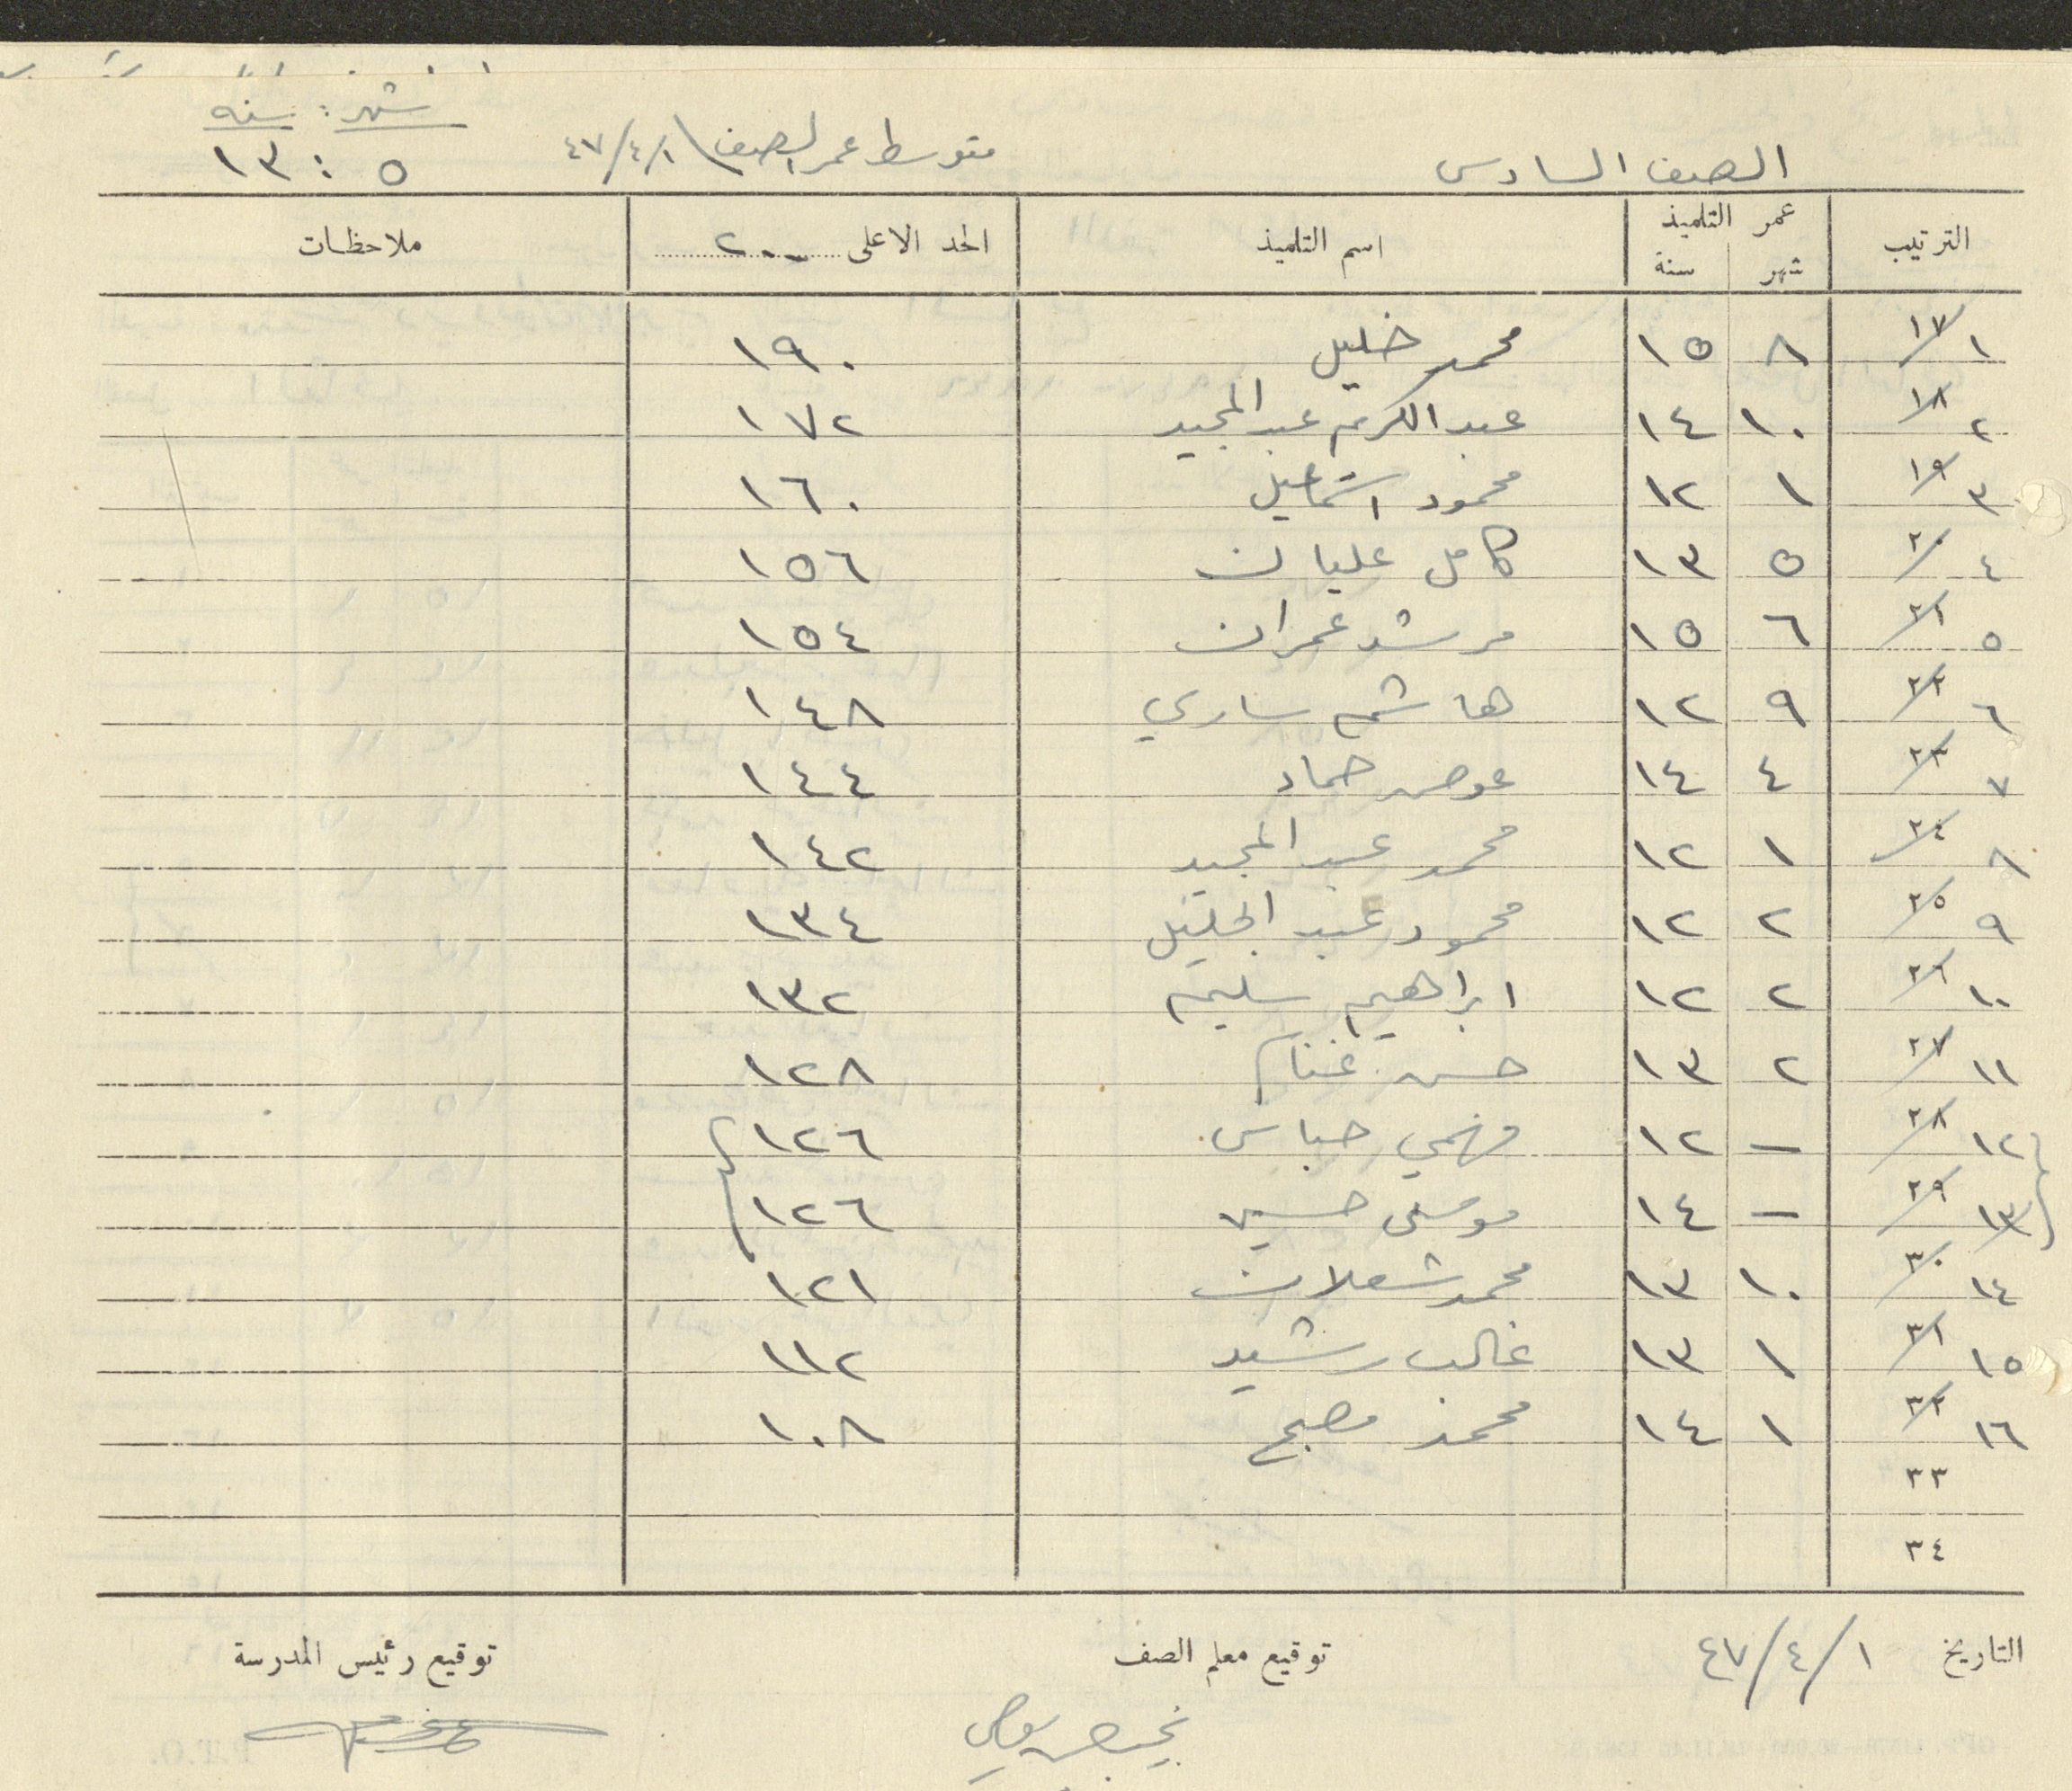 شهر : سنه
الصف السادس متوسط عمر الصف ١/٤/٤٧ ٥ : ١٣
الترتيب عمر التلميذ اسم التلميذ الحد الاعلى ٢٠٠ ملاحظات
شهر سنة
١ ١٧ ٨ ١٥ محمد خليل ١٩٠
٢ ١٨ ١٠ ١٤ عبد الكريم عبد المجيد ١٧٢
٣ ١٩ ١ ١٢ محمود اسماعيل ١٦٠
٤ ٢٠ ٥ ١٣ كامل عليان ١٥٦
٥ ٢١ ٦ ١٥ مرشد عمران ١٥٤
٦ ٢٢ ٩ ١٢ هاشم ساري ١٤٨
٧ ٢٣ ٤ ١٤ عوض حماد ١٤٤
٨ ٢٤ ١ ١٢ محمد عبد المجيد ١٤٢
٩ ٢٥ ٢ ١٢ محمود عبد الجليل ١٣٤
١٠ ٢٦ ٢ ١٢ ابراهيم سليم ١٣٢
١١ ٢٧ ٢ ١٣ حسن غنام ١٢٨
١٢ ٢٨ – ١٢ فهمي حباس ١٢٦
١٣ ٢٩ – ١٤ موسى حسين ١٢٦
١٤ ٣٠ ١٠ ١٣ محمد شعلان ١٢١
١٥ ٣١ ١ ١٣ غالب رشيد ١١٢
١٦ ٣٢ ١ ١٤ محمد مصبح ١٠٨
٣٣
٣٤
التاريخ ١/٤/٤٧ توقيع معلم الصف توقيع رئيس المدرسة